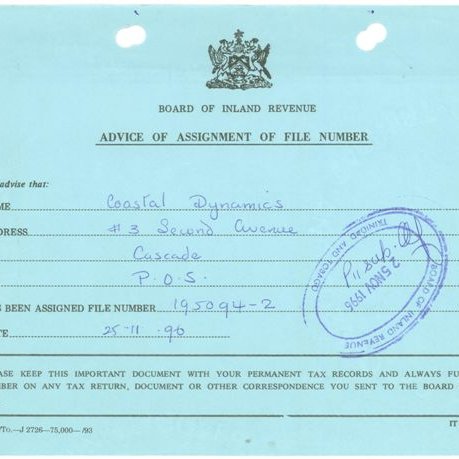 BOARD OF INLAND REVENUE
ADVICE OF ASSIGNMENT OF FILE NUMBER
advise that:
ME Coastal Dynamics
DDRESS #3 Second Avenue
Cascade
P.O.S.
S BEEN ASSIGNED FILE NUMBER 195094-2
TE 25-11-96
BOARD OF INLAND REVENUE
TRINIDAD AND TOBAGO
25 NOV 1996
ASE KEEP THIS IMPORTANT DOCUMENT WITH YOUR PERMANENT TAX RECORDS AND ALWAYS FU
MBER ON ANY TAX RETURN, DOCUMENT OR OTHER CORRESPONDENCE YOU SENT TO THE BOARD
IT
/To.—J 2726—75,000—/93